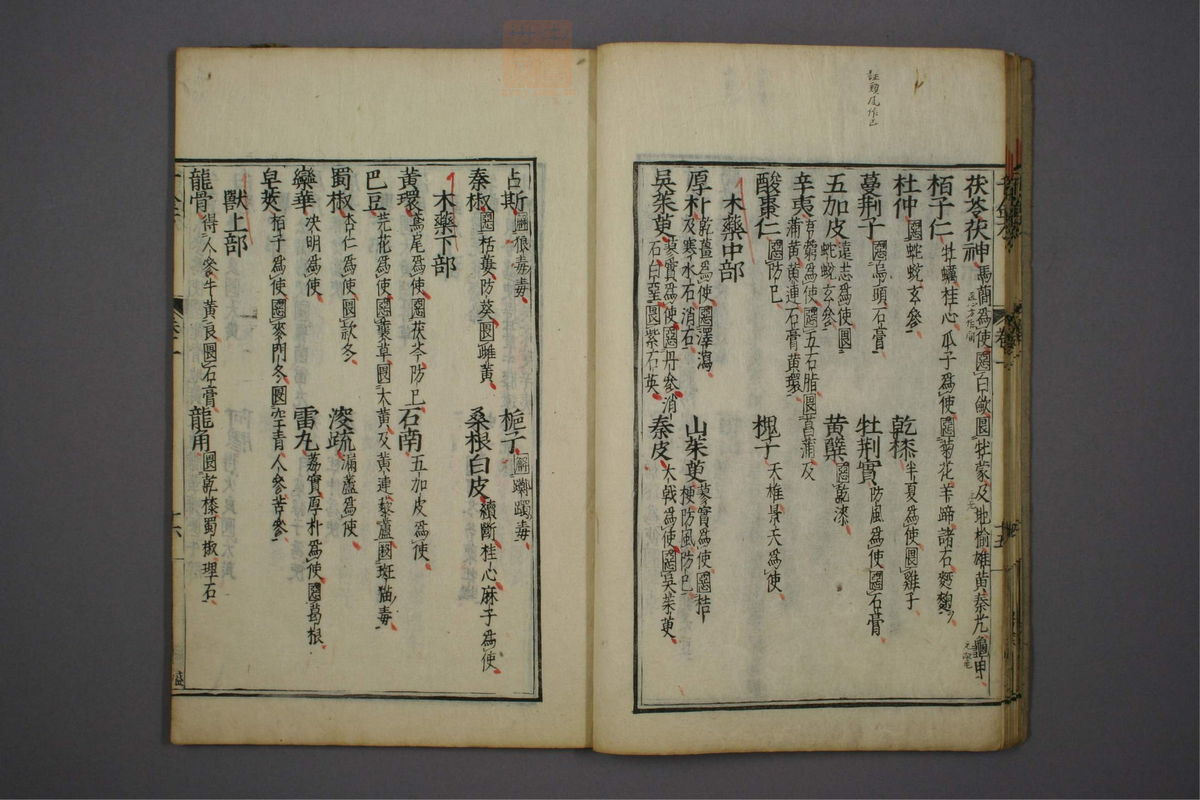 茯苓茯神馬藺爲使惡白斂畏牡蒙及地榆雄黃秦艽龜甲
栢子仁牡蠣桂心瓜子爲使惡菊花羊蹄諸石麪麴
杜仲惡蛇蛻玄參 乾漆半夏爲使畏雞子
蔓荆子惡烏頭石膏 牡荆實防風爲使惡石膏
五加皮遠志爲使畏蛇蛻玄參 黃蘗惡乾漆
辛夷芎藭爲使惡五石脂畏菖蒲及蒲黃黃連石膏黃環
酸棗仁惡防巳 槐子天雄景天爲使
木藥中部
厚朴乾薑爲使惡澤瀉及寒水石消石 山茱萸蓼實爲使惡桔梗防風防巳
吳茱萸蓼實爲使惡丹參消石白堊畏紫石英 秦皮大戟爲使惡吳茱萸
占斯解狼毒毒 梔子解躑躅毒
秦椒惡栝蔞防葵畏雌黃 桑根白皮續斷桂心麻子爲使
木藥下部
黃環鳶尾爲使惡茯苓防巳 石南五加皮爲使
巴豆芫花爲使惡蘘草畏大黃及黃連藜蘆殺斑猫毒
蜀椒杏仁爲使畏款冬 溲疏漏蘆爲使
欒華決明爲使 雷丸荔實厚朴爲使惡葛根
皂莢栢子爲使惡麥門冬畏空青人參苦參
獸上部
龍骨得人參牛黃良畏石膏 龍角畏乾漆蜀椒理石